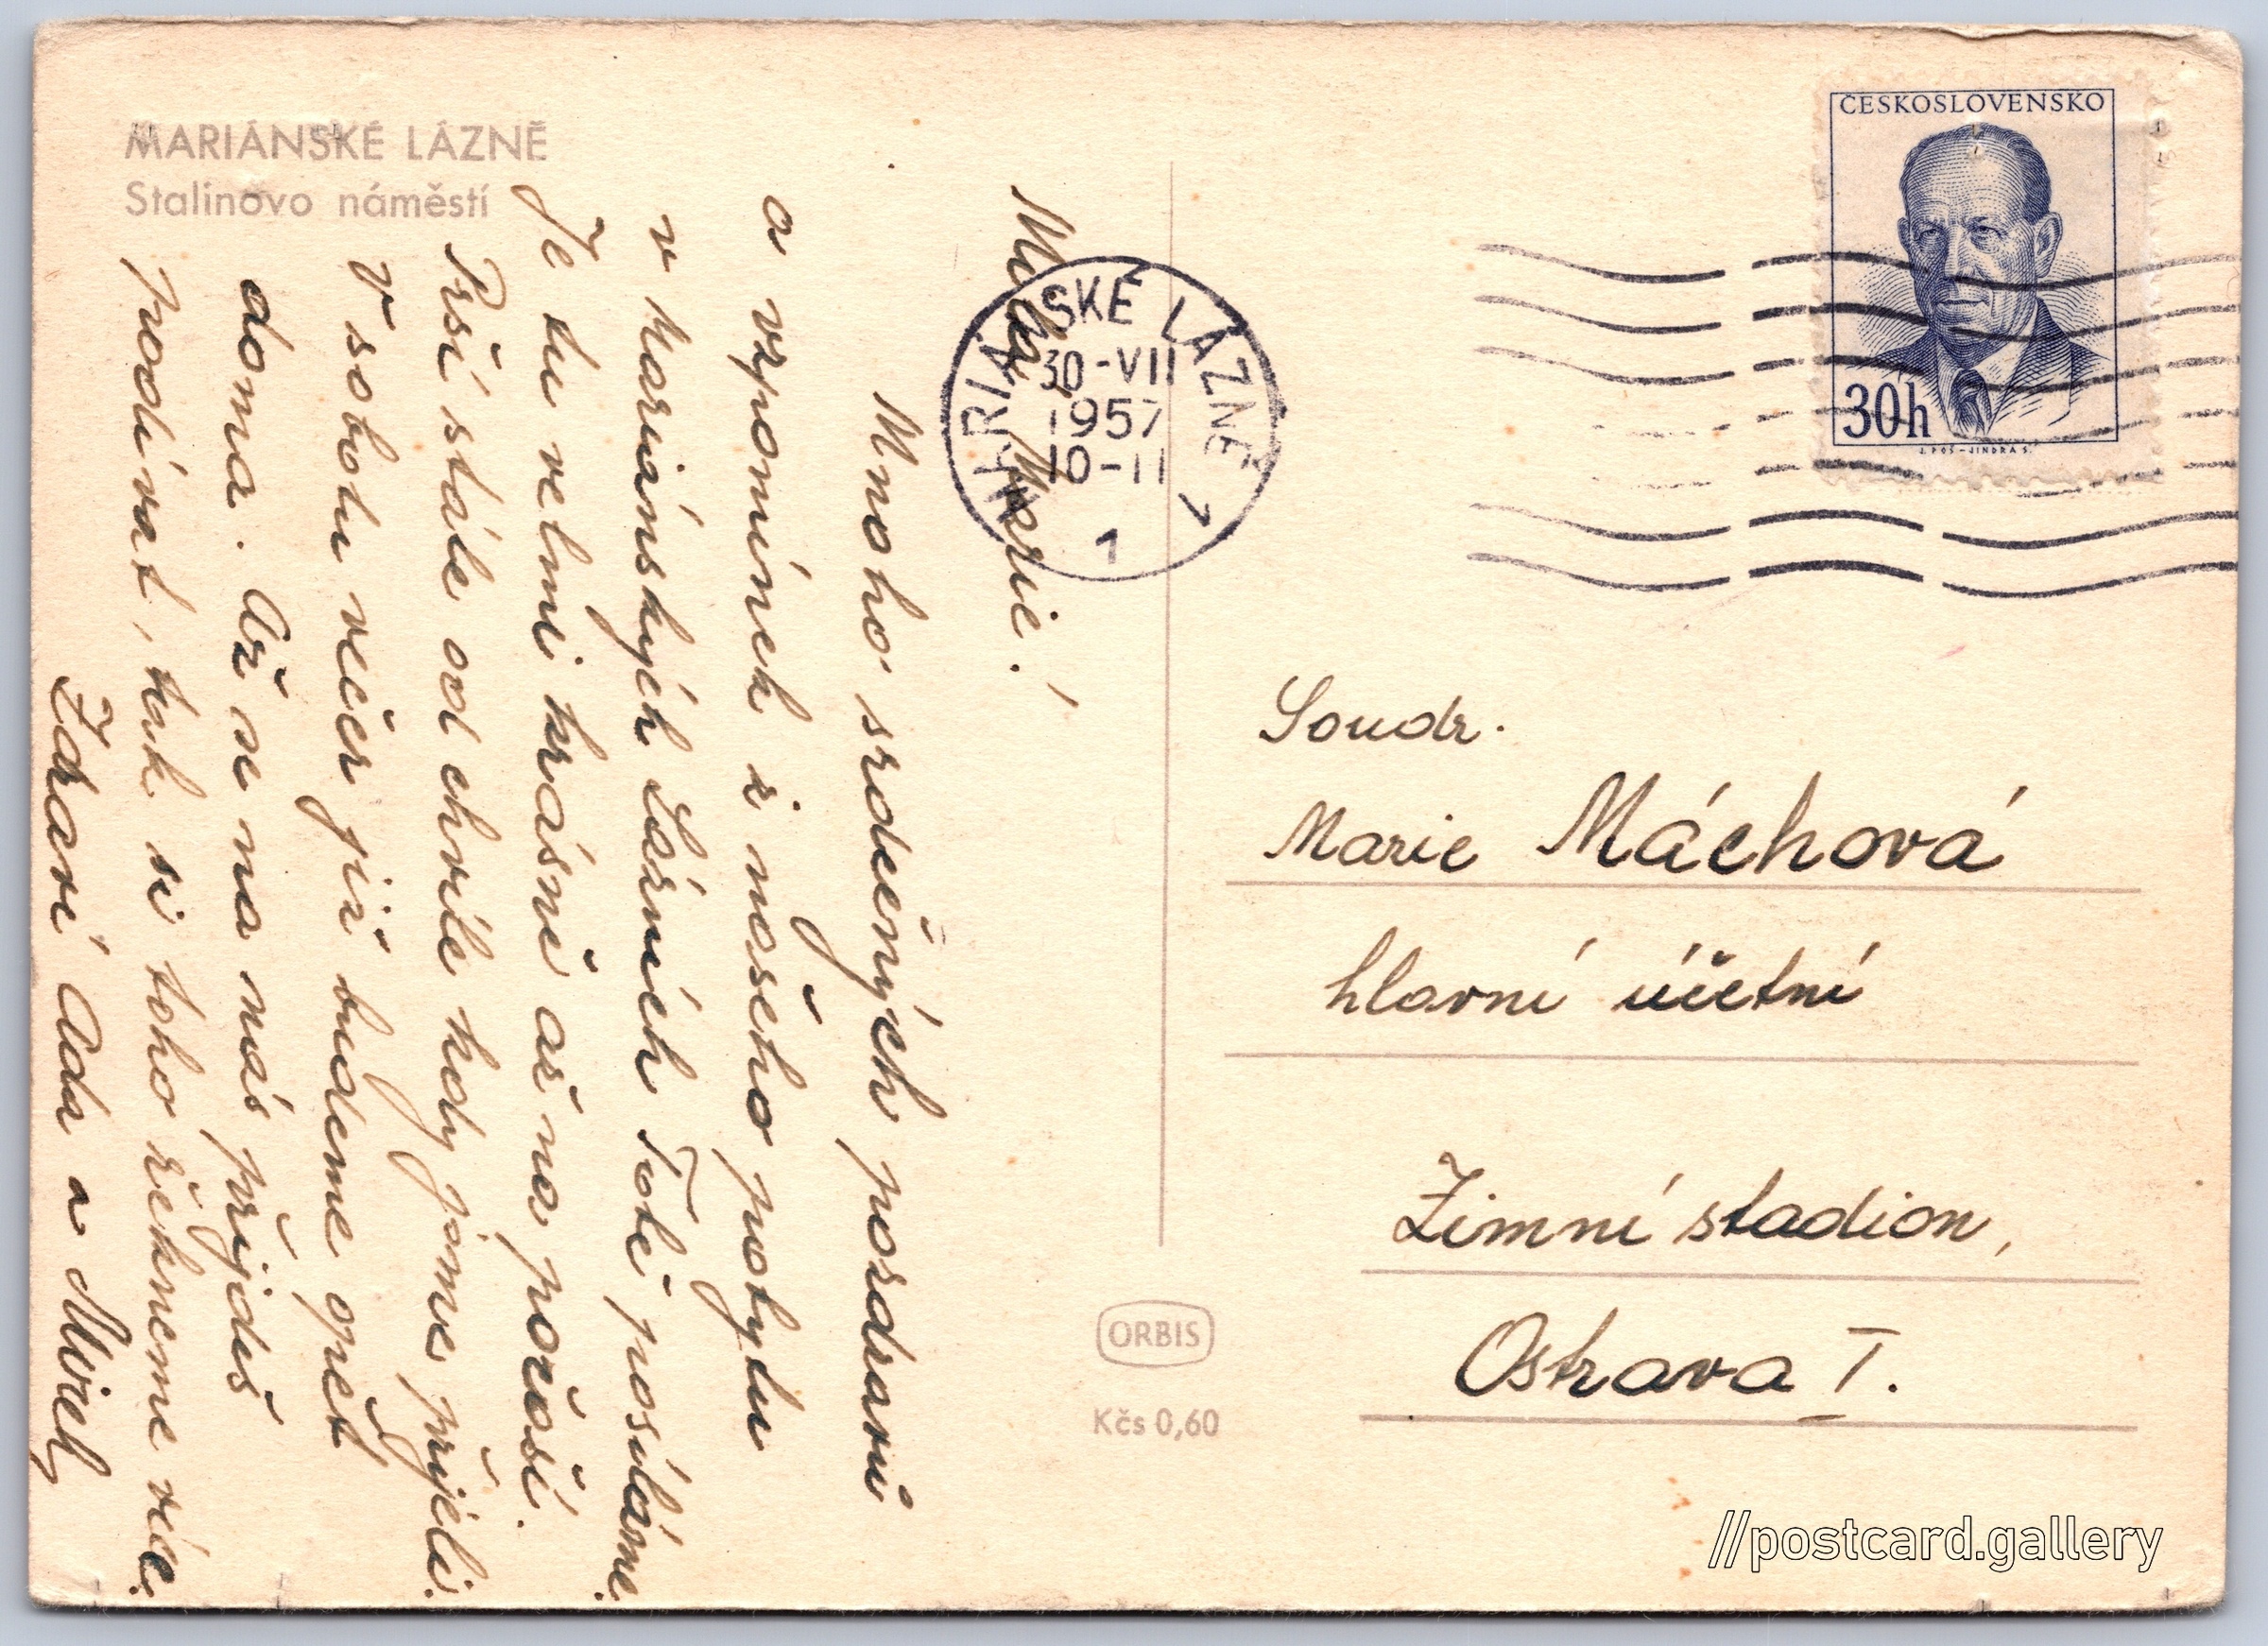 MARIÁNSKÉ LÁZNĚ
Stalinovo náměstí
Milá Marie!
Mnoho srdečných pozdravů
a vzpomínek z našeho pobytu
v Mariánských Lázních Tobě posíláme.
Je tu velmi krásně až na počasí.
Prší stále od chvíle kdy jsme přijeli.
V sobotu večer již budeme opět
doma. Až se na nás přijdeš
podívat, tak si toho řekneme více.
Zdraví Ada a Mirek
MARIÁNSKÉ LÁZNĚ 1
30-VII
1957
19-11
1
ČESKOSLOVENSKO
30h
J. POŠ-JINDRA S.
Soudr.
Marie Máchová
hlavní účetní
Zimní stadion,
Ostrava I.
ORBIS
Kčs 0,60
//postcard.gallery